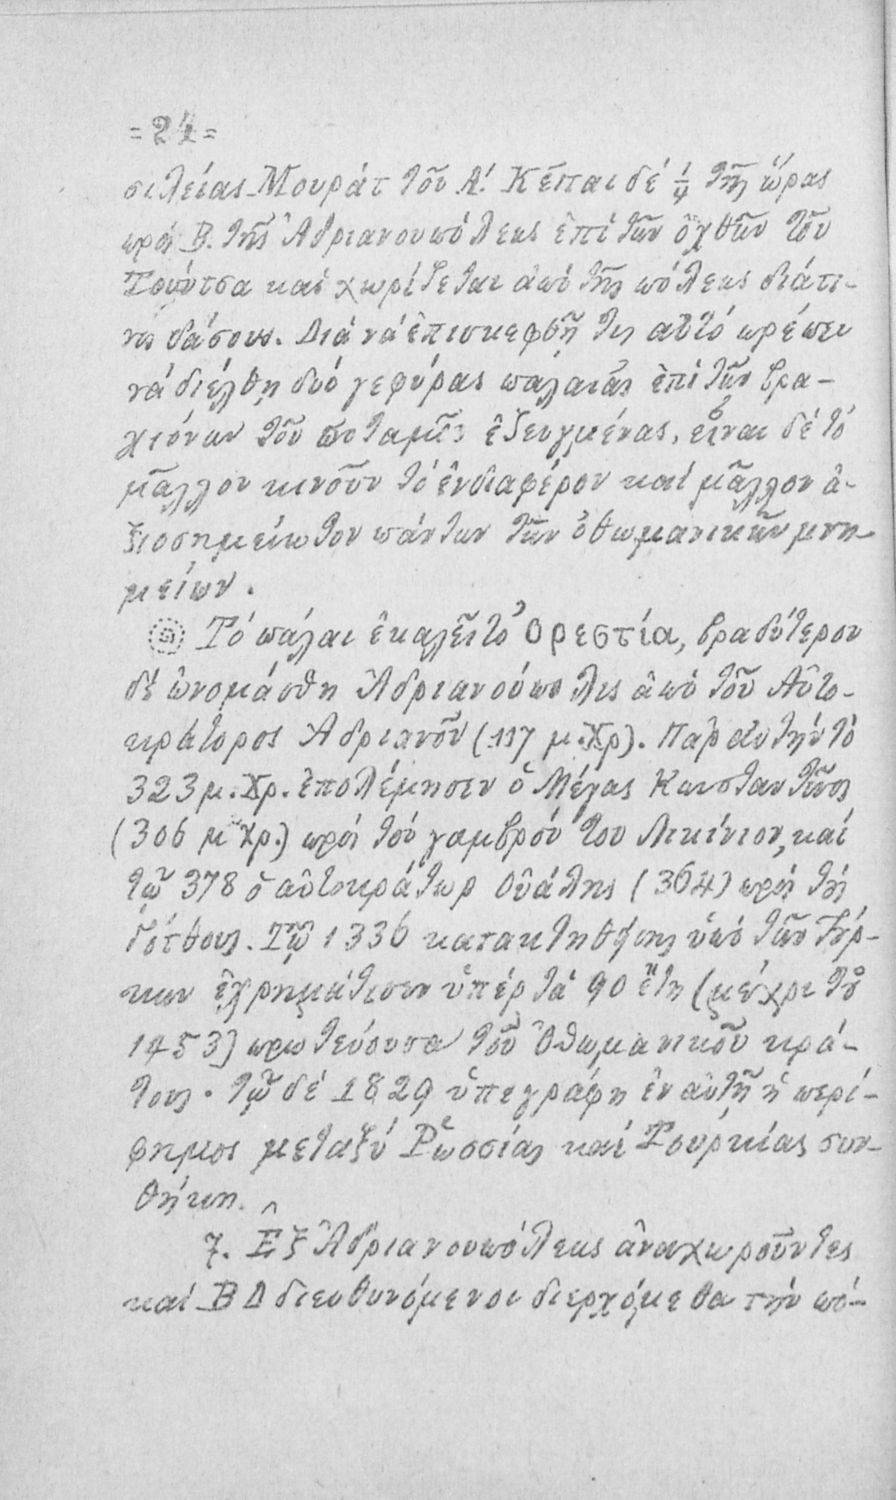 =24=
σιλείας Μουράτ τοῦ Α΄. Κεῖται δέ 1/4 τῆς ὥρας
πρός Β. τῆς Ἀδριανουπόλεως ἐπί τῶν ὀχθῶν τοῦ
Τούντσα καί χωρίζεται ἀπό τῆς πόλεως διά τι-
νος δάσους. Διά νά ἐπισκεφθῇ τις αὐτό πρέπει
νά διέλθῃ δυό γεφύρας παλαιάς ἐπί τῶν βρα-
χιόνων τοῦ ποταμοῦ ἐζευγμένας, εἶναι δέ τό
μᾶλλον κινοῦν τό ἐνδιαφέρον καί μᾶλλον ἀ-
ξιοσημείωτον πάντων τῶν ὀθωμανικῶν μνη-
μείων.
Τό πάλαι ἐκαλεῖτο Ὀρεστία, βραδύτερον
δέ ὠνομάσθη Ἀδριανούπολις ἀπό τοῦ Αὐτο-
κράτορος Ἀδριανοῦ (117 μ.Χρ). Παρ' αὐτήν τό
323 μ.Χρ. ἐπολέμησεν ὁ Μέγας Κωνσταντῖνος
(306 μ Χρ.) πρός τόν γαμβρόν του Λικίνιον, καί
τῷ 378 ὁ αὐτοκράτωρ Οὐάλης (364) πρός τούς
Γότθους. Τῷ 1336 κατακτηθεῖσα ὑπό τῶν Τούρ-
κων ἐχρημάτισεν ὑπέρ τά 90 ἔτη (μέχρι τοῦ
1453) πρωτεύουσα τοῦ Ὀθωμανικοῦ κρά-
τους. τῷ δέ 1829 ὑπεγράφη ἐν αὐτῇ ἡ περί-
φημος μεταξύ Ῥωσσίας καί Τουρκίας συν-
θήκη.
7. Ἐξ Ἀδριανουπόλεως ἀναχωροῦντες
καί ΒΔ διευθυνόμενοι διερχόμεθα τήν πό-